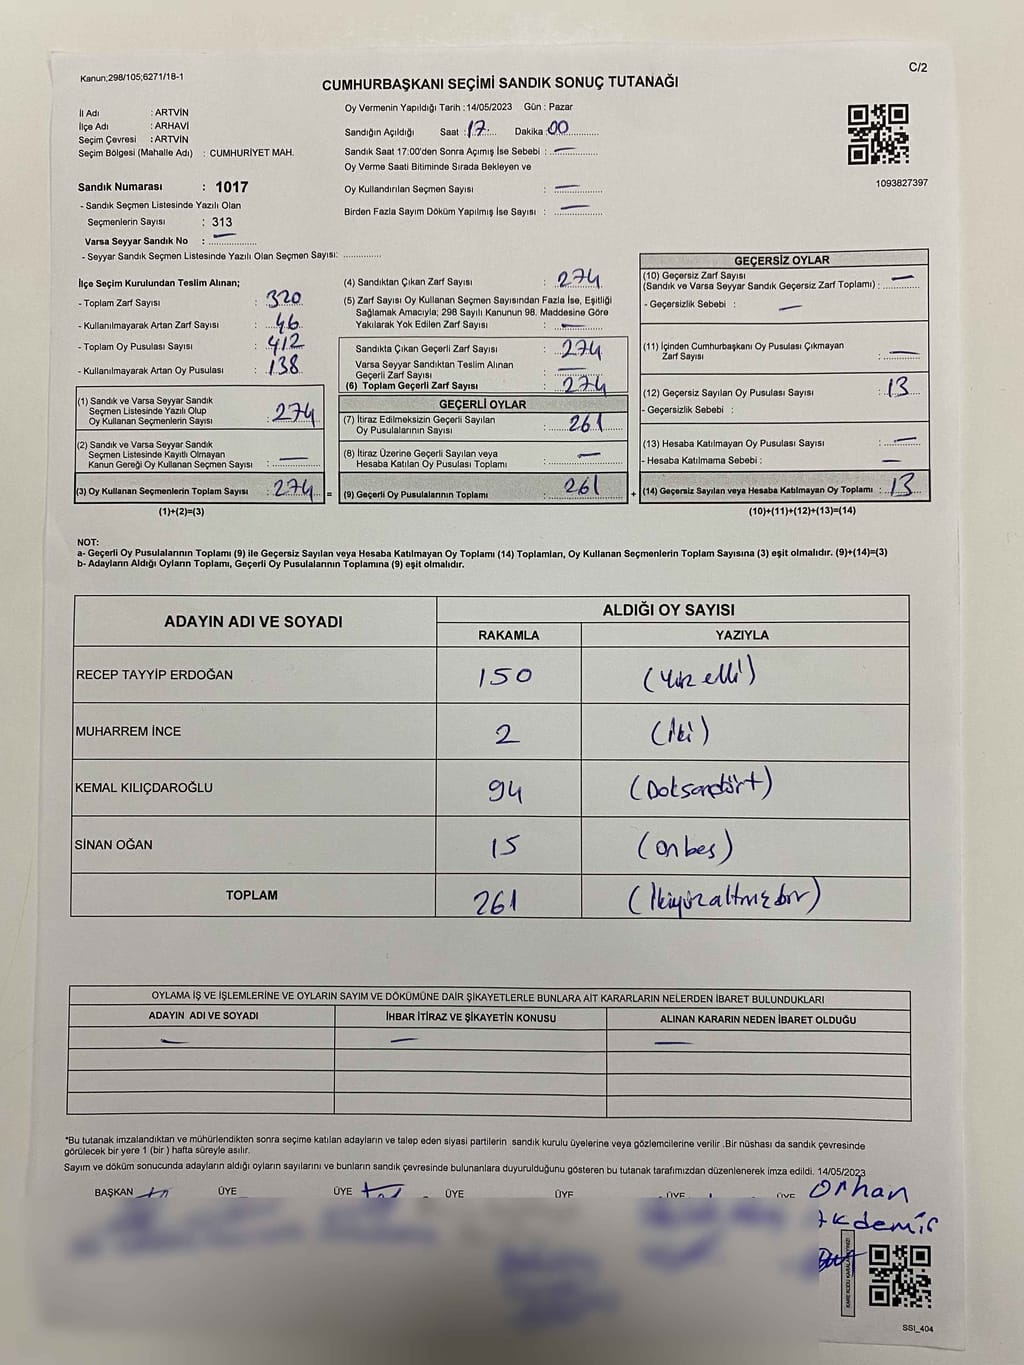 Kanun;298/105;6271/18-1
C/2
CUMHURBAŞKANI SEÇİMİ SANDIK SONUÇ TUTANAĞI
İl Adı : ARTVİN
İlçe Adı : ARHAVİ
Seçim Çevresi : ARTVİN
Seçim Bölgesi (Mahalle Adı) : CUMHURİYET MAH.
Sandık Numarası : 1017
- Sandık Seçmen Listesinde Yazılı Olan
Seçmenlerin Sayısı : 313
Varsa Seyyar Sandık No : —
- Seyyar Sandık Seçmen Listesinde Yazılı Olan Seçmen Sayısı: ..............
Oy Vermenin Yapıldığı Tarih : 14/05/2023 Gün : Pazar
Sandığın Açıldığı Saat : 17 Dakika : 00
Sandık Saat 17:00'den Sonra Açımış İse Sebebi : —
Oy Verme Saati Bitiminde Sırada Bekleyen ve
Oy Kullandırılan Seçmen Sayısı : —
Birden Fazla Sayım Döküm Yapılmış İse Sayısı : —
1093827397
İlçe Seçim Kurulundan Teslim Alınan;
- Toplam Zarf Sayısı : 320
- Kullanılmayarak Artan Zarf Sayısı : 46
- Toplam Oy Pusulası Sayısı : 412
- Kullanılmayarak Artan Oy Pusulası : 138
(1) Sandık ve Varsa Seyyar Sandık
Seçmen Listesinde Yazılı Olup
Oy Kullanan Seçmenlerin Sayısı : 274
(2) Sandık ve Varsa Seyyar Sandık
Seçmen Listesinde Kayıtlı Olmayan
Kanun Gereği Oy Kullanan Seçmen Sayısı : —
(3) Oy Kullanan Seçmenlerin Toplam Sayısı : 274 =
(1)+(2)=(3)
(4) Sandıktan Çıkan Zarf Sayısı : 274
(5) Zarf Sayısı Oy Kullanan Seçmen Sayısından Fazla İse, Eşitliği
Sağlamak Amacıyla; 298 Sayılı Kanunun 98. Maddesine Göre
Yakılarak Yok Edilen Zarf Sayısı : —
Sandıkta Çıkan Geçerli Zarf Sayısı : 274
Varsa Seyyar Sandıktan Teslim Alınan
Geçerli Zarf Sayısı : —
(6) Toplam Geçerli Zarf Sayısı : 274
GEÇERLİ OYLAR
(7) İtiraz Edilmeksizin Geçerli Sayılan
Oy Pusulalarının Sayısı : 261
(8) İtiraz Üzerine Geçerli Sayılan veya
Hesaba Katılan Oy Pusulası Toplamı : —
(9) Geçerli Oy Pusulalarının Toplamı : 261 +
GEÇERSİZ OYLAR
(10) Geçersiz Zarf Sayısı
(Sandık ve Varsa Seyyar Sandık Geçersiz Zarf Toplamı) : —
- Geçersizlik Sebebi : —
(11) İçinden Cumhurbaşkanı Oy Pusulası Çıkmayan
Zarf Sayısı : —
(12) Geçersiz Sayılan Oy Pusulası Sayısı : 13
- Geçersizlik Sebebi :
(13) Hesaba Katılmayan Oy Pusulası Sayısı : —
- Hesaba Katılmama Sebebi : —
(14) Geçersiz Sayılan veya Hesaba Katılmayan Oy Toplamı : 13
(10)+(11)+(12)+(13)=(14)
NOT:
a- Geçerli Oy Pusulalarının Toplamı (9) ile Geçersiz Sayılan veya Hesaba Katılmayan Oy Toplamı (14) Toplamları, Oy Kullanan Seçmenlerin Toplam Sayısına (3) eşit olmalıdır. (9)+(14)=(3)
b- Adayların Aldığı Oyların Toplamı, Geçerli Oy Pusulalarının Toplamına (9) eşit olmalıdır.
ADAYIN ADI VE SOYADI ALDIĞI OY SAYISI
RAKAMLA YAZIYLA
RECEP TAYYİP ERDOĞAN 150 (Yüz elli)
MUHARREM İNCE 2 (İki)
KEMAL KILIÇDAROĞLU 94 (Doksandört)
SİNAN OĞAN 15 (onbeş)
TOPLAM 261 (İkiyüzaltmışbir)
OYLAMA İŞ VE İŞLEMLERİNE VE OYLARIN SAYIM VE DÖKÜMÜNE DAİR ŞİKAYETLERLE BUNLARA AİT KARARLARIN NELERDEN İBARET BULUNDUKLARI
ADAYIN ADI VE SOYADI İHBAR İTİRAZ VE ŞİKAYETİN KONUSU ALINAN KARARIN NEDEN İBARET OLDUĞU
— — —
*Bu tutanak imzalandıktan ve mühürlendikten sonra seçime katılan adayların ve talep eden siyasi partilerin sandık kurulu üyelerine veya gözlemcilerine verilir .Bir nüshası da sandık çevresinde
görülecek bir yere 1 (bir ) hafta süreyle asılır.
Sayım ve döküm sonucunda adayların aldığı oyların sayılarını ve bunların sandık çevresinde bulunanlara duyurulduğunu gösteren bu tutanak tarafımızdan düzenlenerek imza edildi. 14/05/2023
BAŞKAN ÜYE ÜYE ÜYE ÜYE ÜYE ÜYE
Orhan
Akdemir
KARE KODU KARALAMAYINIZ!
SSI_404